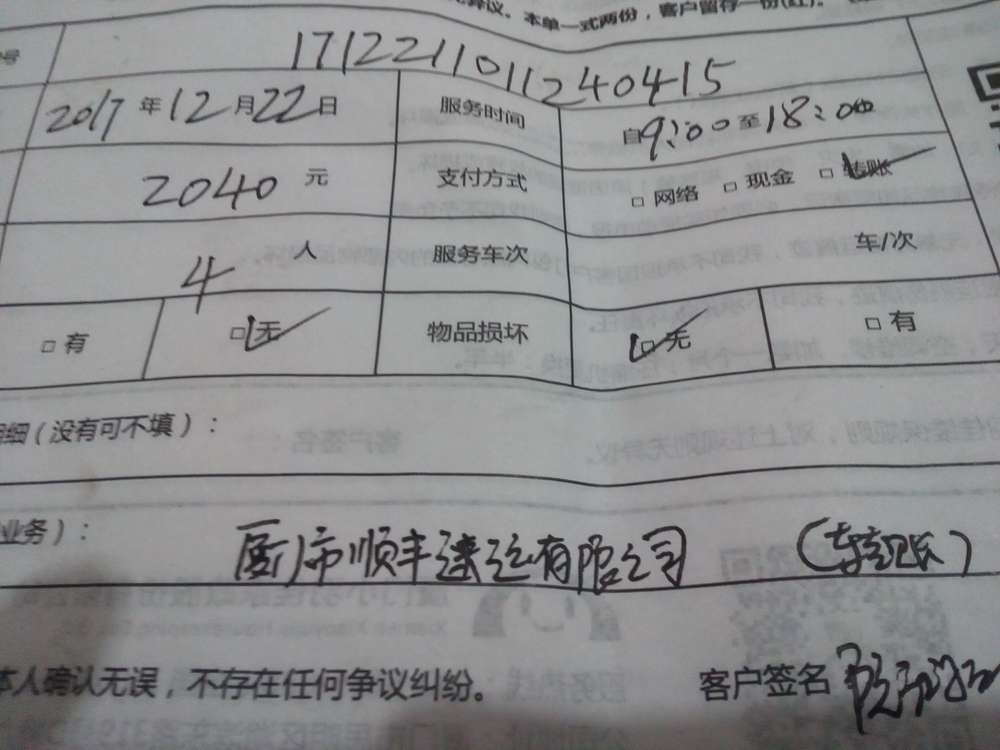 异议。本单一式两份，客户留存一份(红)。
号 171221101124 0415
2017年12月22日 服务时间 自9:00至18:00
2040元 支付方式 □网络 □现金 □转账
4人 服务车次 车/次
□有 □无 物品损坏 □无 □有
细（没有可不填）：
业务）： 厦门市顺丰速运有限公司 （转账）
本人确认无误，不存在任何争议纠纷。 客户签名